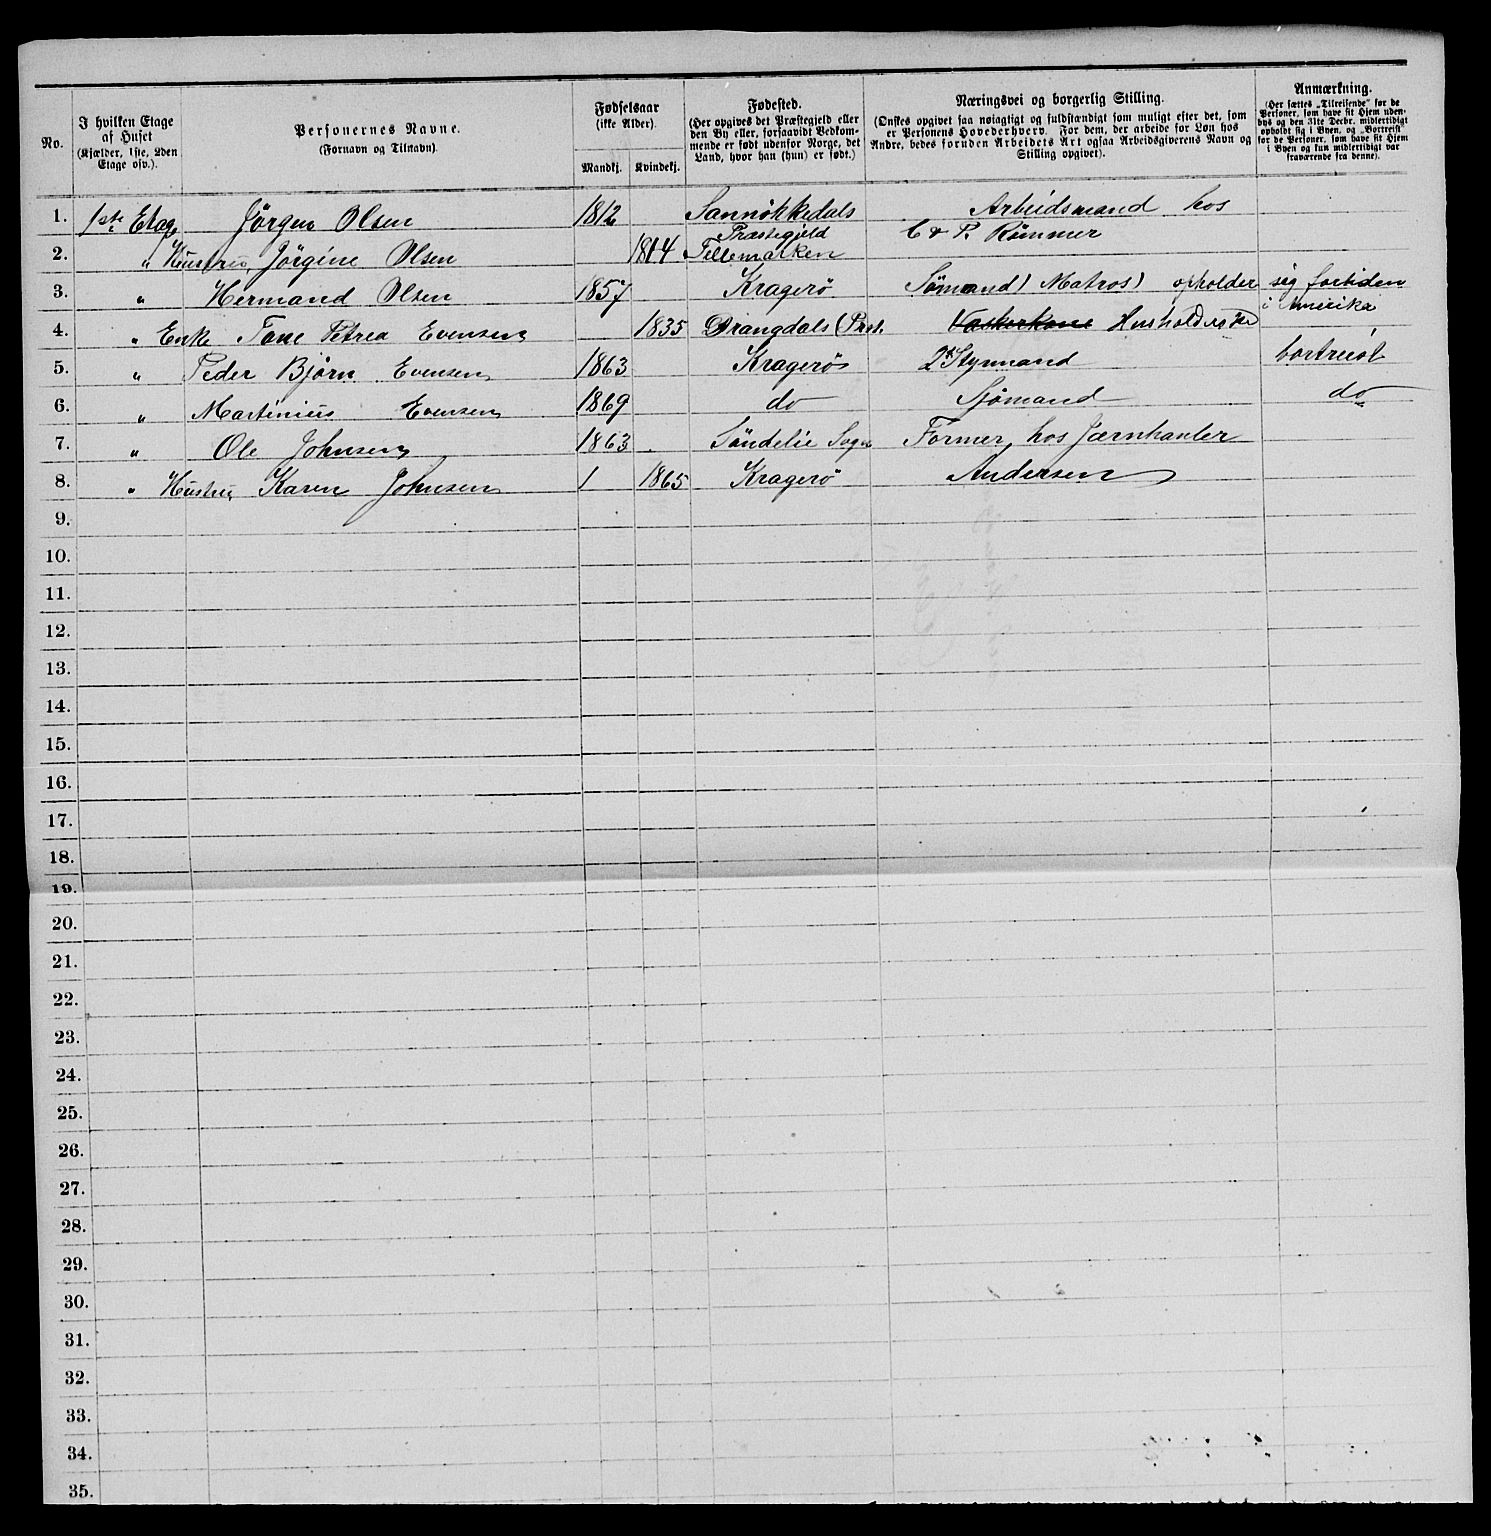 No.
I hvilken Etage
af Huset
(Kjælder, 1ste, 2den
Etage osv.).
Personernes Navne.
(Fornavn og Tilnavn).
Fødselsaar
(ikke Alder).
Mandkj. Kvindekj.
Fødested.
(Her opgives det Præstegjeld eller
den By eller, forsaavidt Vedkom-
mende er født udenfor Norge, det
Land, hvor han (hun) er født.)
Næringsvei og borgerlig Stilling.
(Ønskes opgivet saa nøiagtigt og fuldstændigt som muligt efter det, som
er Personens Hovederhverv. For dem, der arbeide for Løn hos
Andre, bedes foruden Arbeidets Art ogsaa Arbeidsgiverens Navn og
Stilling opgivet).
Anmærkning.
(Her sættes „Tilreisende“ for de
Personer, som have sit Hjem uden-
bys og den 31te Decbr. midlertidigt
opholdt sig i Byen, og „Bortreist“
for de Personer, som have sit Hjem
i Byen og kun midlertidigt var
fraværende fra denne).
1. 1ste Etage Jörgen Olsen 1812 Sannökkedals Arbeidsmand hos
Præstegjeld C & P. Rømmer
2. " Hustru, Jörgine Olsen 1814 Tellemarken
3. " Hermand Olsen 1857 Kragerö Sömand (Matros) opholder sig fortiden
i Amerika
4. " Enke Tone Petrea Evensen 1835 Drangdals (Prst. Vaskerkone Husholderske
5. " Peder Björn Evensen 1863 Kragerö 2. Styrmand bortreist
6. " Martinius Evensen 1869 do Sjömand do
7. " Ole Johnsen 1863 Söndelie Sogn Former, hos Jærnhanler
8. " Hustru Karen Johnsen 1 1865 Kragerö Andersen
9.
10.
11.
12.
13.
14.
15.
16.
17.
18.
19.
20.
21.
22.
23.
24.
25.
26.
27.
28.
29.
30.
31.
32.
33.
34.
35.